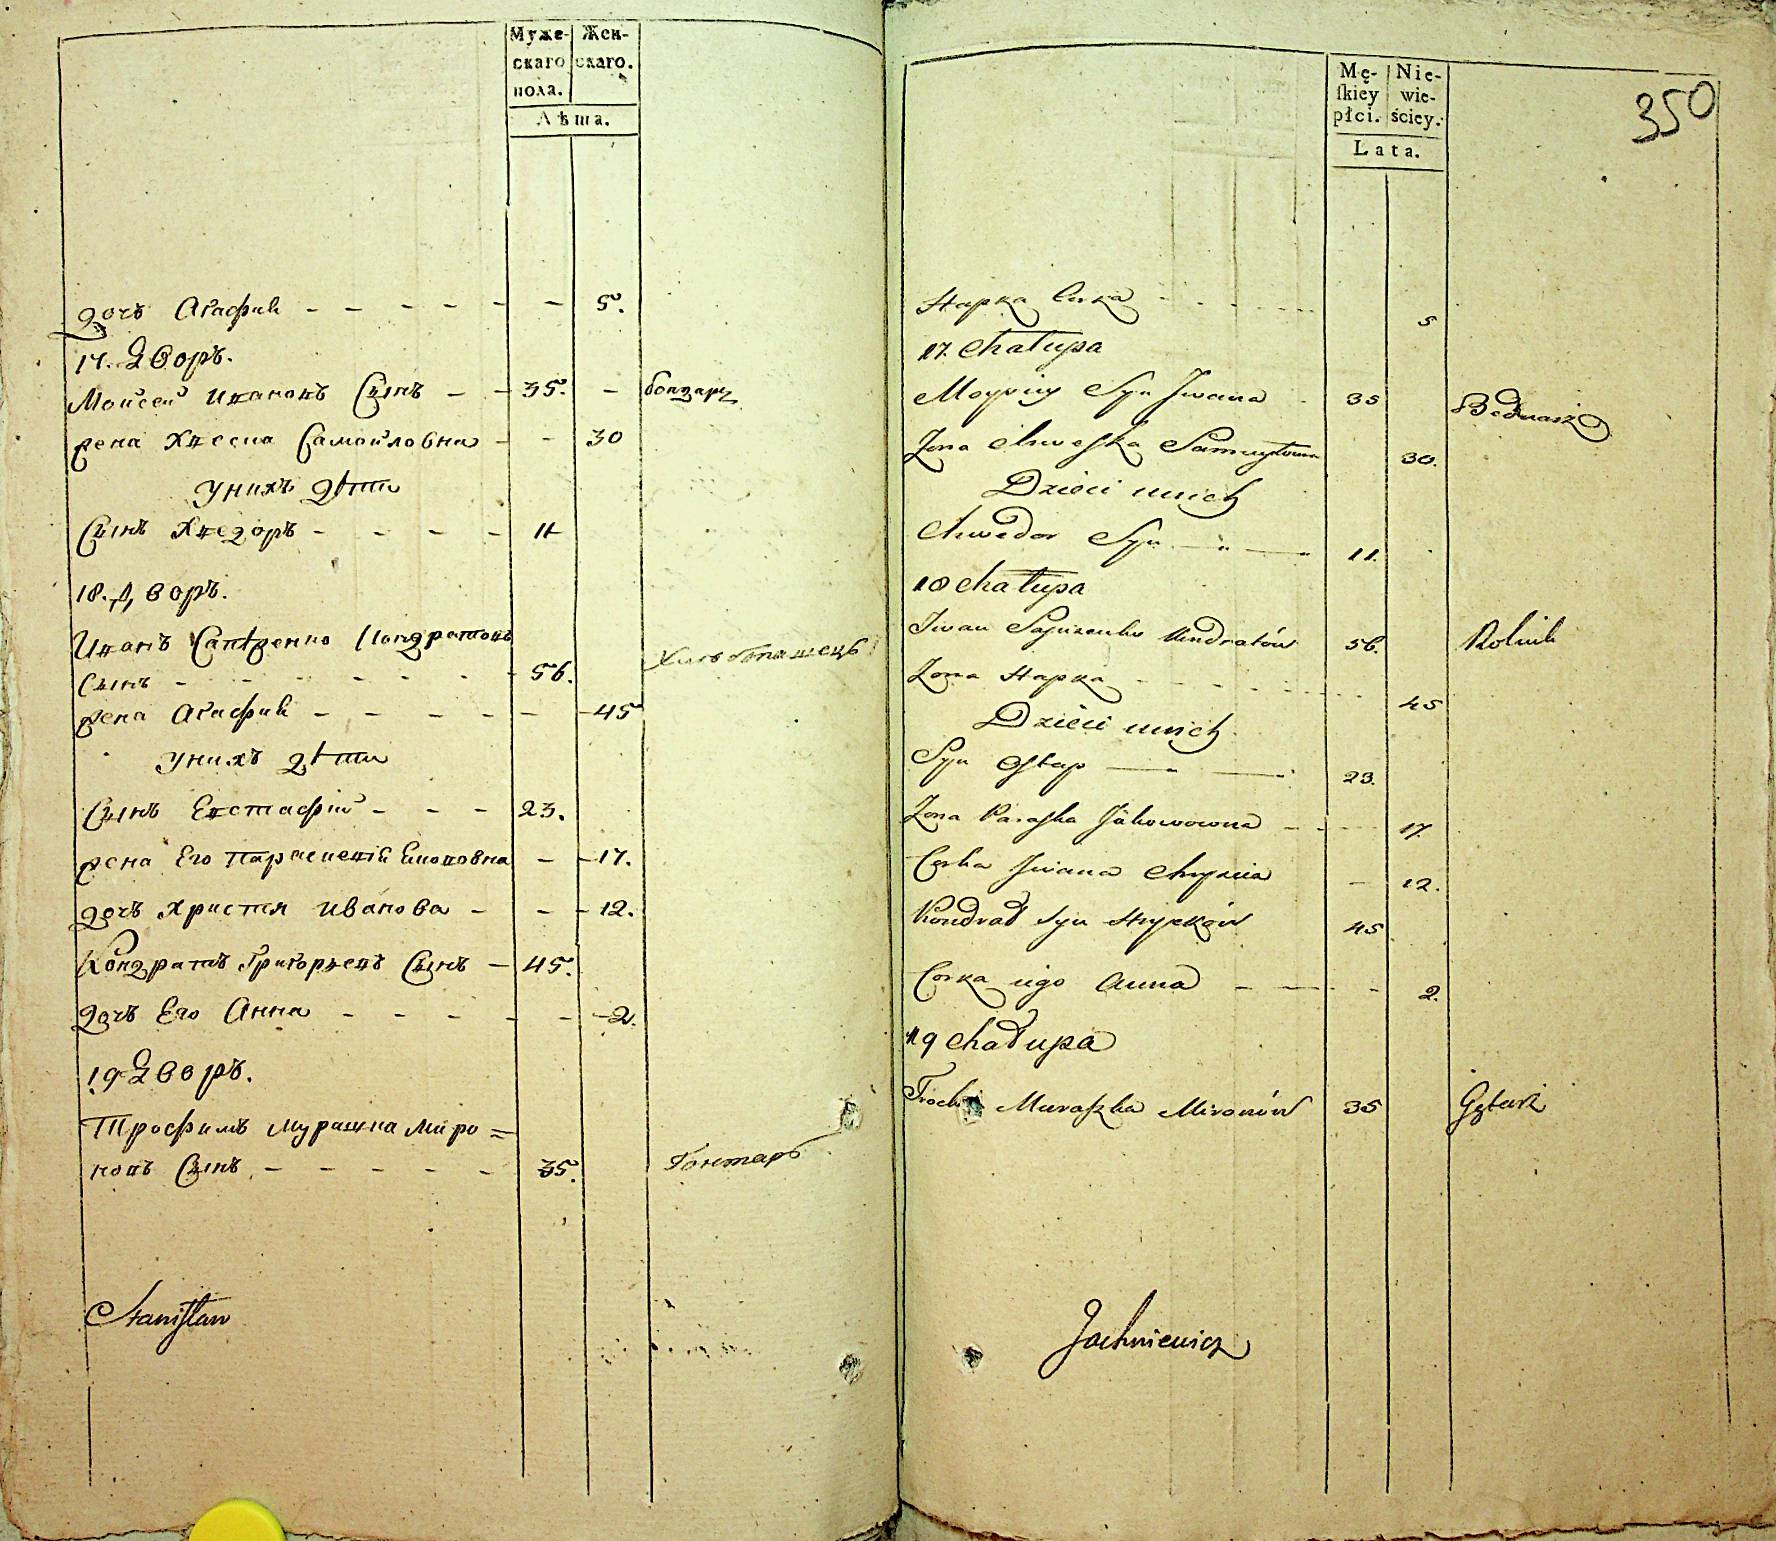 Муже- Жен-
скаго скаго.
пола.
Лѣта.
дочь Агафия 5.
17. Дворъ.
Моисей Ивановъ Сынъ 35. бондарь
жена Хвеска Самойловна 30
у нихъ дѣти
Сынъ Хведоръ 11
18. Дворъ.
Иванъ Кондратовъ
Сынъ 56. Хлебопашецъ
жена Агафия 45
у нихъ дѣти
Сынъ Евстафій 23.
жена Его 17.
дочь Христя Иванова 12.
Кондратъ Григорьевъ Сынъ 45.
дочь Его Анна 2.
19 Дворъ.
Трофимъ Мурашка Миро=
новъ Сынъ 35. Гонтарь
Stanisław
350
Mę- Nie-
skiey wie-
płci. ściey.
Lata.
Hapka Curka 5
17. Chałupa
Moysiey Syn Jwana 35 Bednarz
Żona Chweska Samuyłowna 30.
Dzieci u nich
Chwedor Syn 11.
18 Chałupa
Jwan Kondratów 56. Rolnik
Żona Hapka 45
Dzieci u nich
Syn Ostap 23.
Żona Paraska Jakowowna 17.
Corka Jwana Chrycia 12.
Kondrat Syn Hryćków 45
Corka iego Anna 2.
19 Chałupa
Muraszka Mironów 35
Jachniewicz